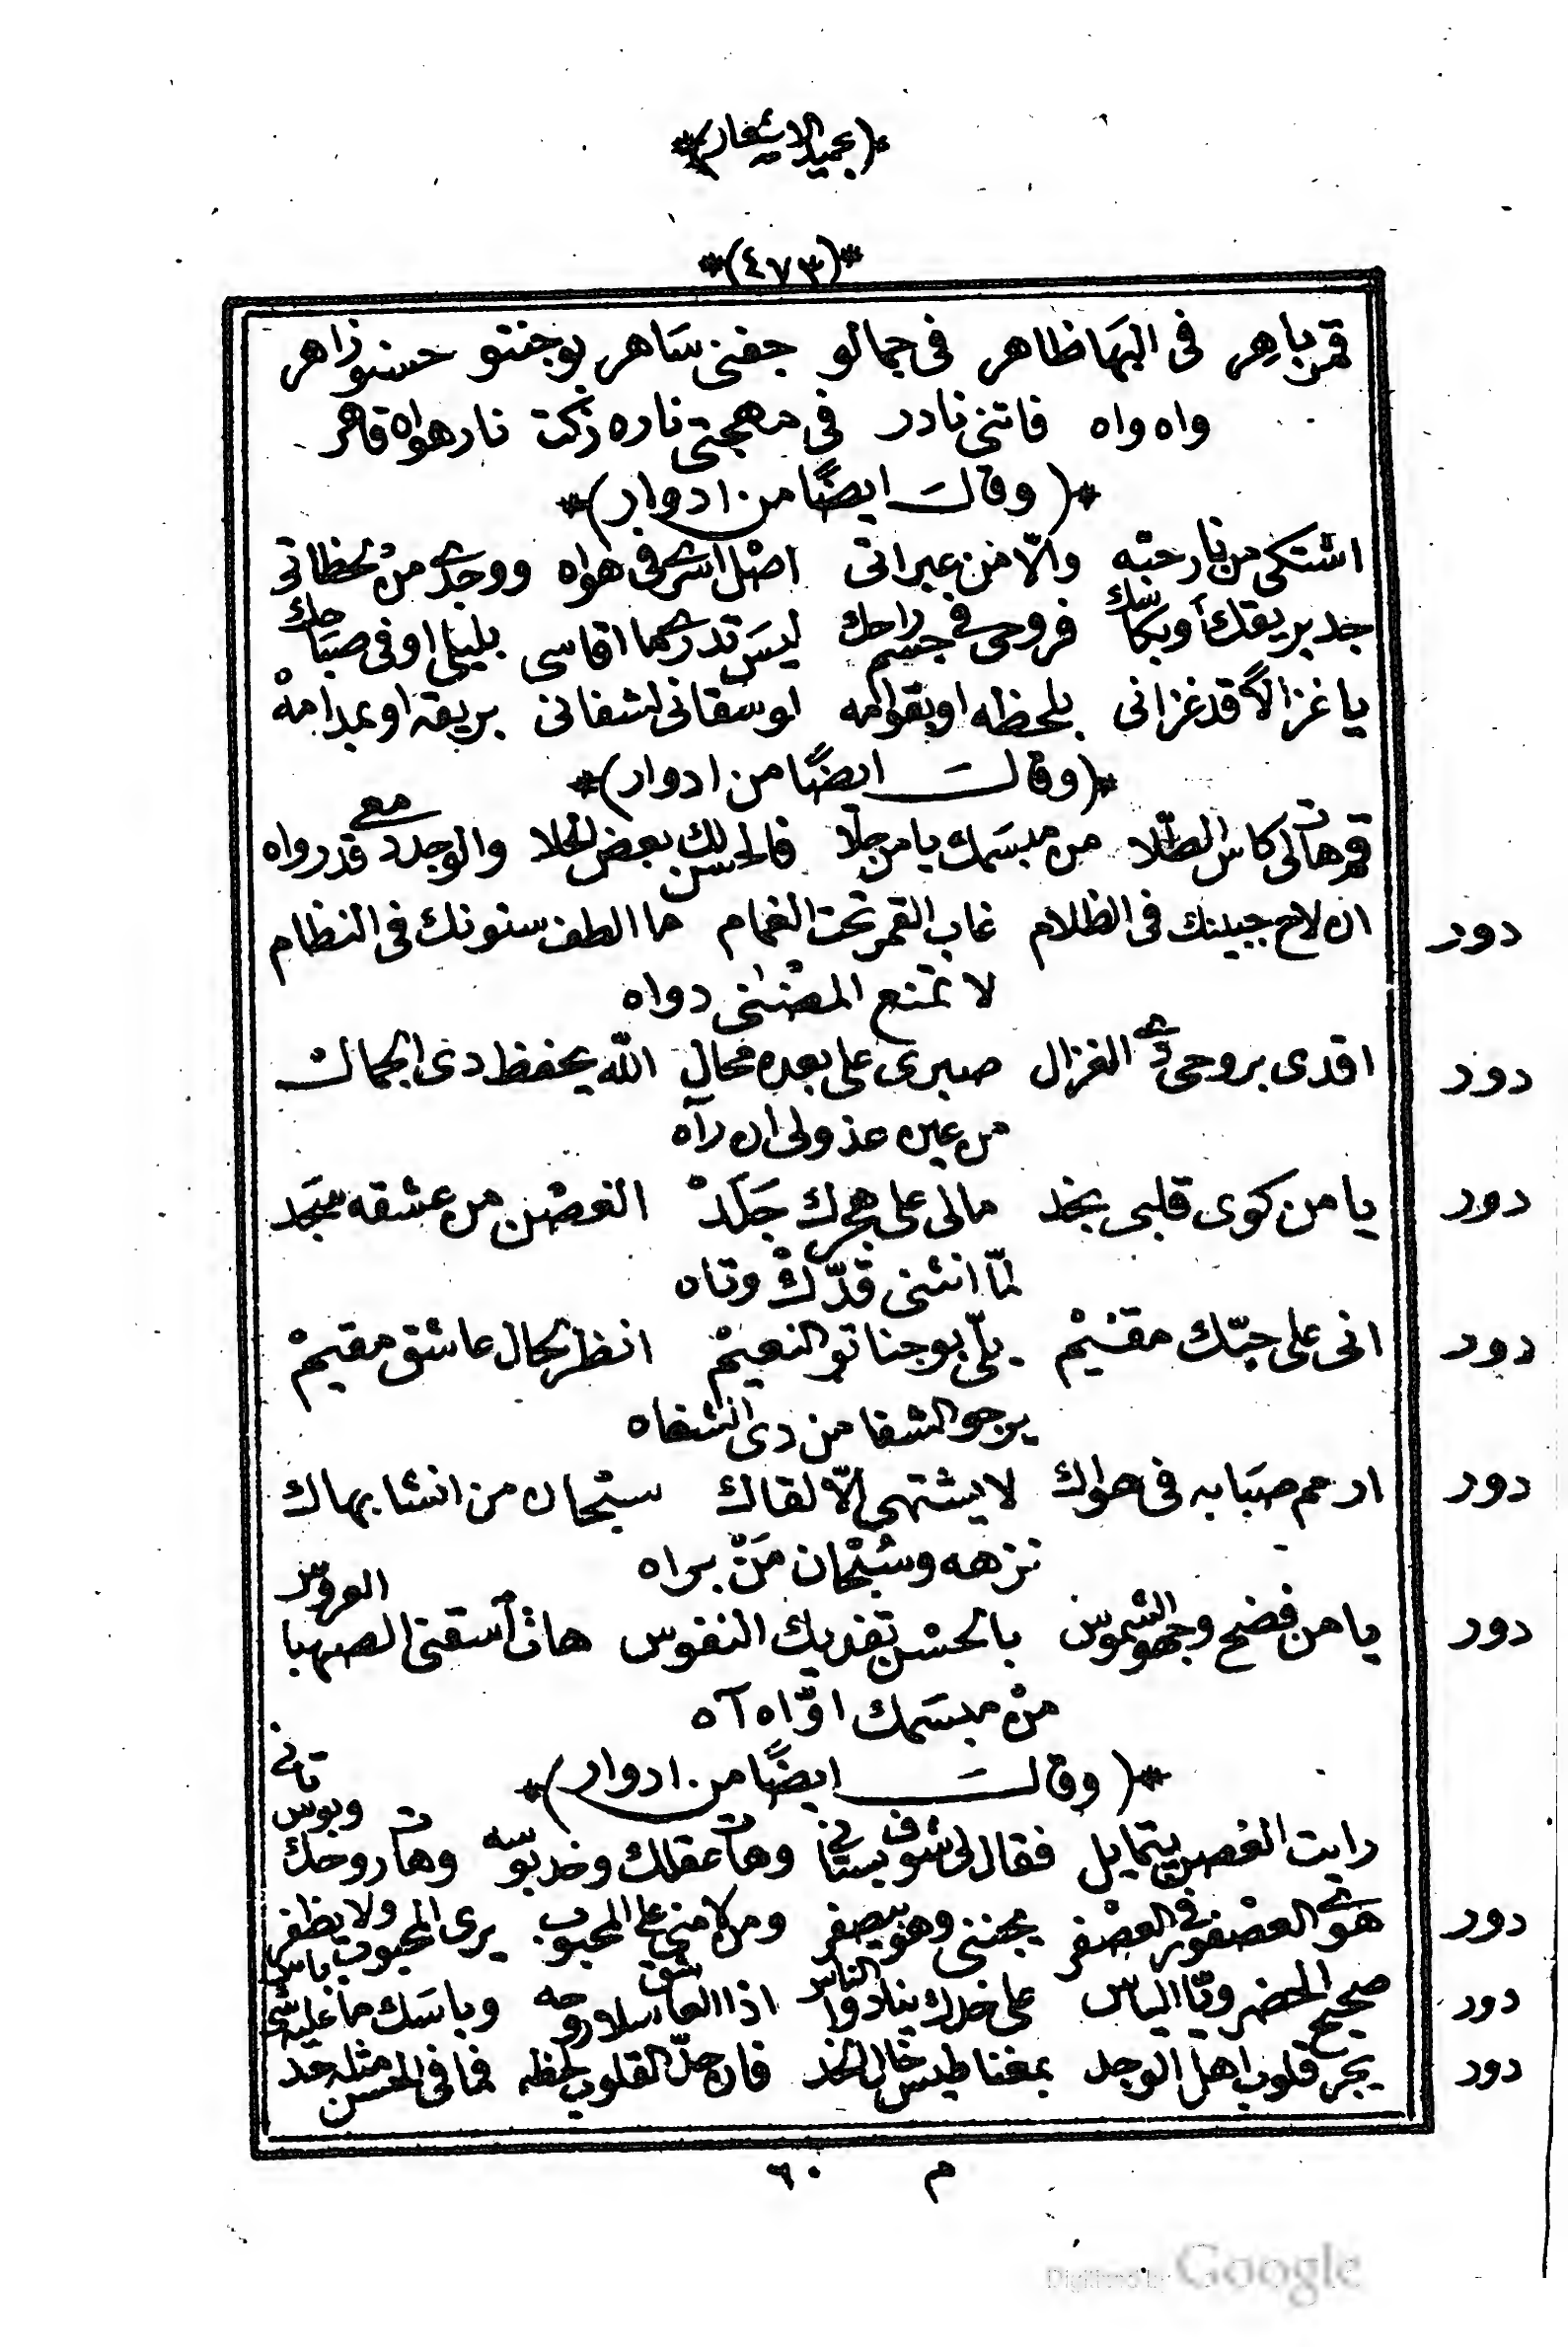 *(٤٧٣)*
قمر باهر فى البَها ظاهر فى جمالو جفنى سَاهر بوجنتو حسنو زاهر
واه واه فاتنى نادر فى مهجتى ناره زكت نار هواه قاهر
*(وقالت ايضًا من ادوار)*
اشتكى من نار حبّه والّا من عبراتى اصْل اسرى فى هواه ووجدى منْ لحظاتى
جد بريقك أو بكاسك فروحى فى جسم راحك ليسَ تدرى ما اقاسى بليلى او فى صبَاحك
يا غزالاً قد غزانى بلحظه او بقوامه لو سقانى لشفانى بريقه او بمدامهْ
*(وقالت ايضًا من ادوار)*
قم هات لى كاس الطّلا من مبسَمك يا من حلا فالحسن لك بعض الحلا والوجد دمعى قد رواه
دور ان لاح جبينك فى الظلام غاب القمر تحت الغمام ما الطف سنونك فى النظام
لا تمنع المضنى دواه
دور افدى بروحى ذى الغزال صبرى على بعده محال الله يحفظ دى الجمال
من عين عذولى ان رآه
دور يا من كوى قلبى بخد مالى على هجرك جَلَدْ الغصْن من عشقه سَجَد
لمّا انثنى قدّكْ وتاه
دور انى على حبّك مقيْم يلّى بوجناتو النعيمْ انظر لحال عاشق مقيمْ
يرجو الشفا من دى الشفاه
دور ارحم صبَابه فى هواك لا يشتهى الّا لقاك سبْحان من انشا بهاك
نزهه وسُبْحان مَنْ براه
دور يا من فضح وجهو الشموس بالحسْن تفديك النفوس هات أسقنى الصهبا العروس
منْ مبسَمك اوّاه آه
*(وقالت ايضًا من ادوار)*
رايت الغصن يتمايل فقال لى شوف بستانى وهات عقلك وخد بوسه وهات روحك وبوس تانى
دور هوَى العصْفور فى العصْفر يجننى وهو بيصفر ومن لامنى على المحبوب يرى المحبوب ولا يظفر
دور صحيح الخضر ويّا الياس على خدك ينادوا الناس اذا العاشق سلا روحه وباسَك ما عليه شى باس
دور يجر قلوب اهل الوجد بمغناطيس خال الخد فان حلّ القلوب لحظه فما فى الحسن مثله حد
م ٦٠
Digitized by Google